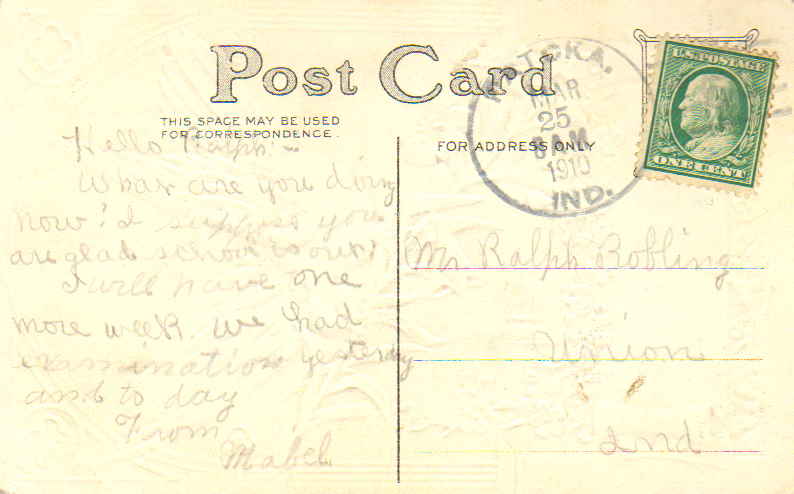 Post Card
THIS SPACE MAY BE USED
FOR CORRESPONDENCE.
FOR ADDRESS ONLY
PATOKA,
MAR
25
8 AM
1910
IND.
U.S. POSTAGE
ONE CENT
Hello Ralph:-
What are you doing
now? I suppose you
are glad school is out?
I will have one
more week. We had
examination yesterday
and to day
From
Mabel
Mr Ralph Robling
Union
Ind